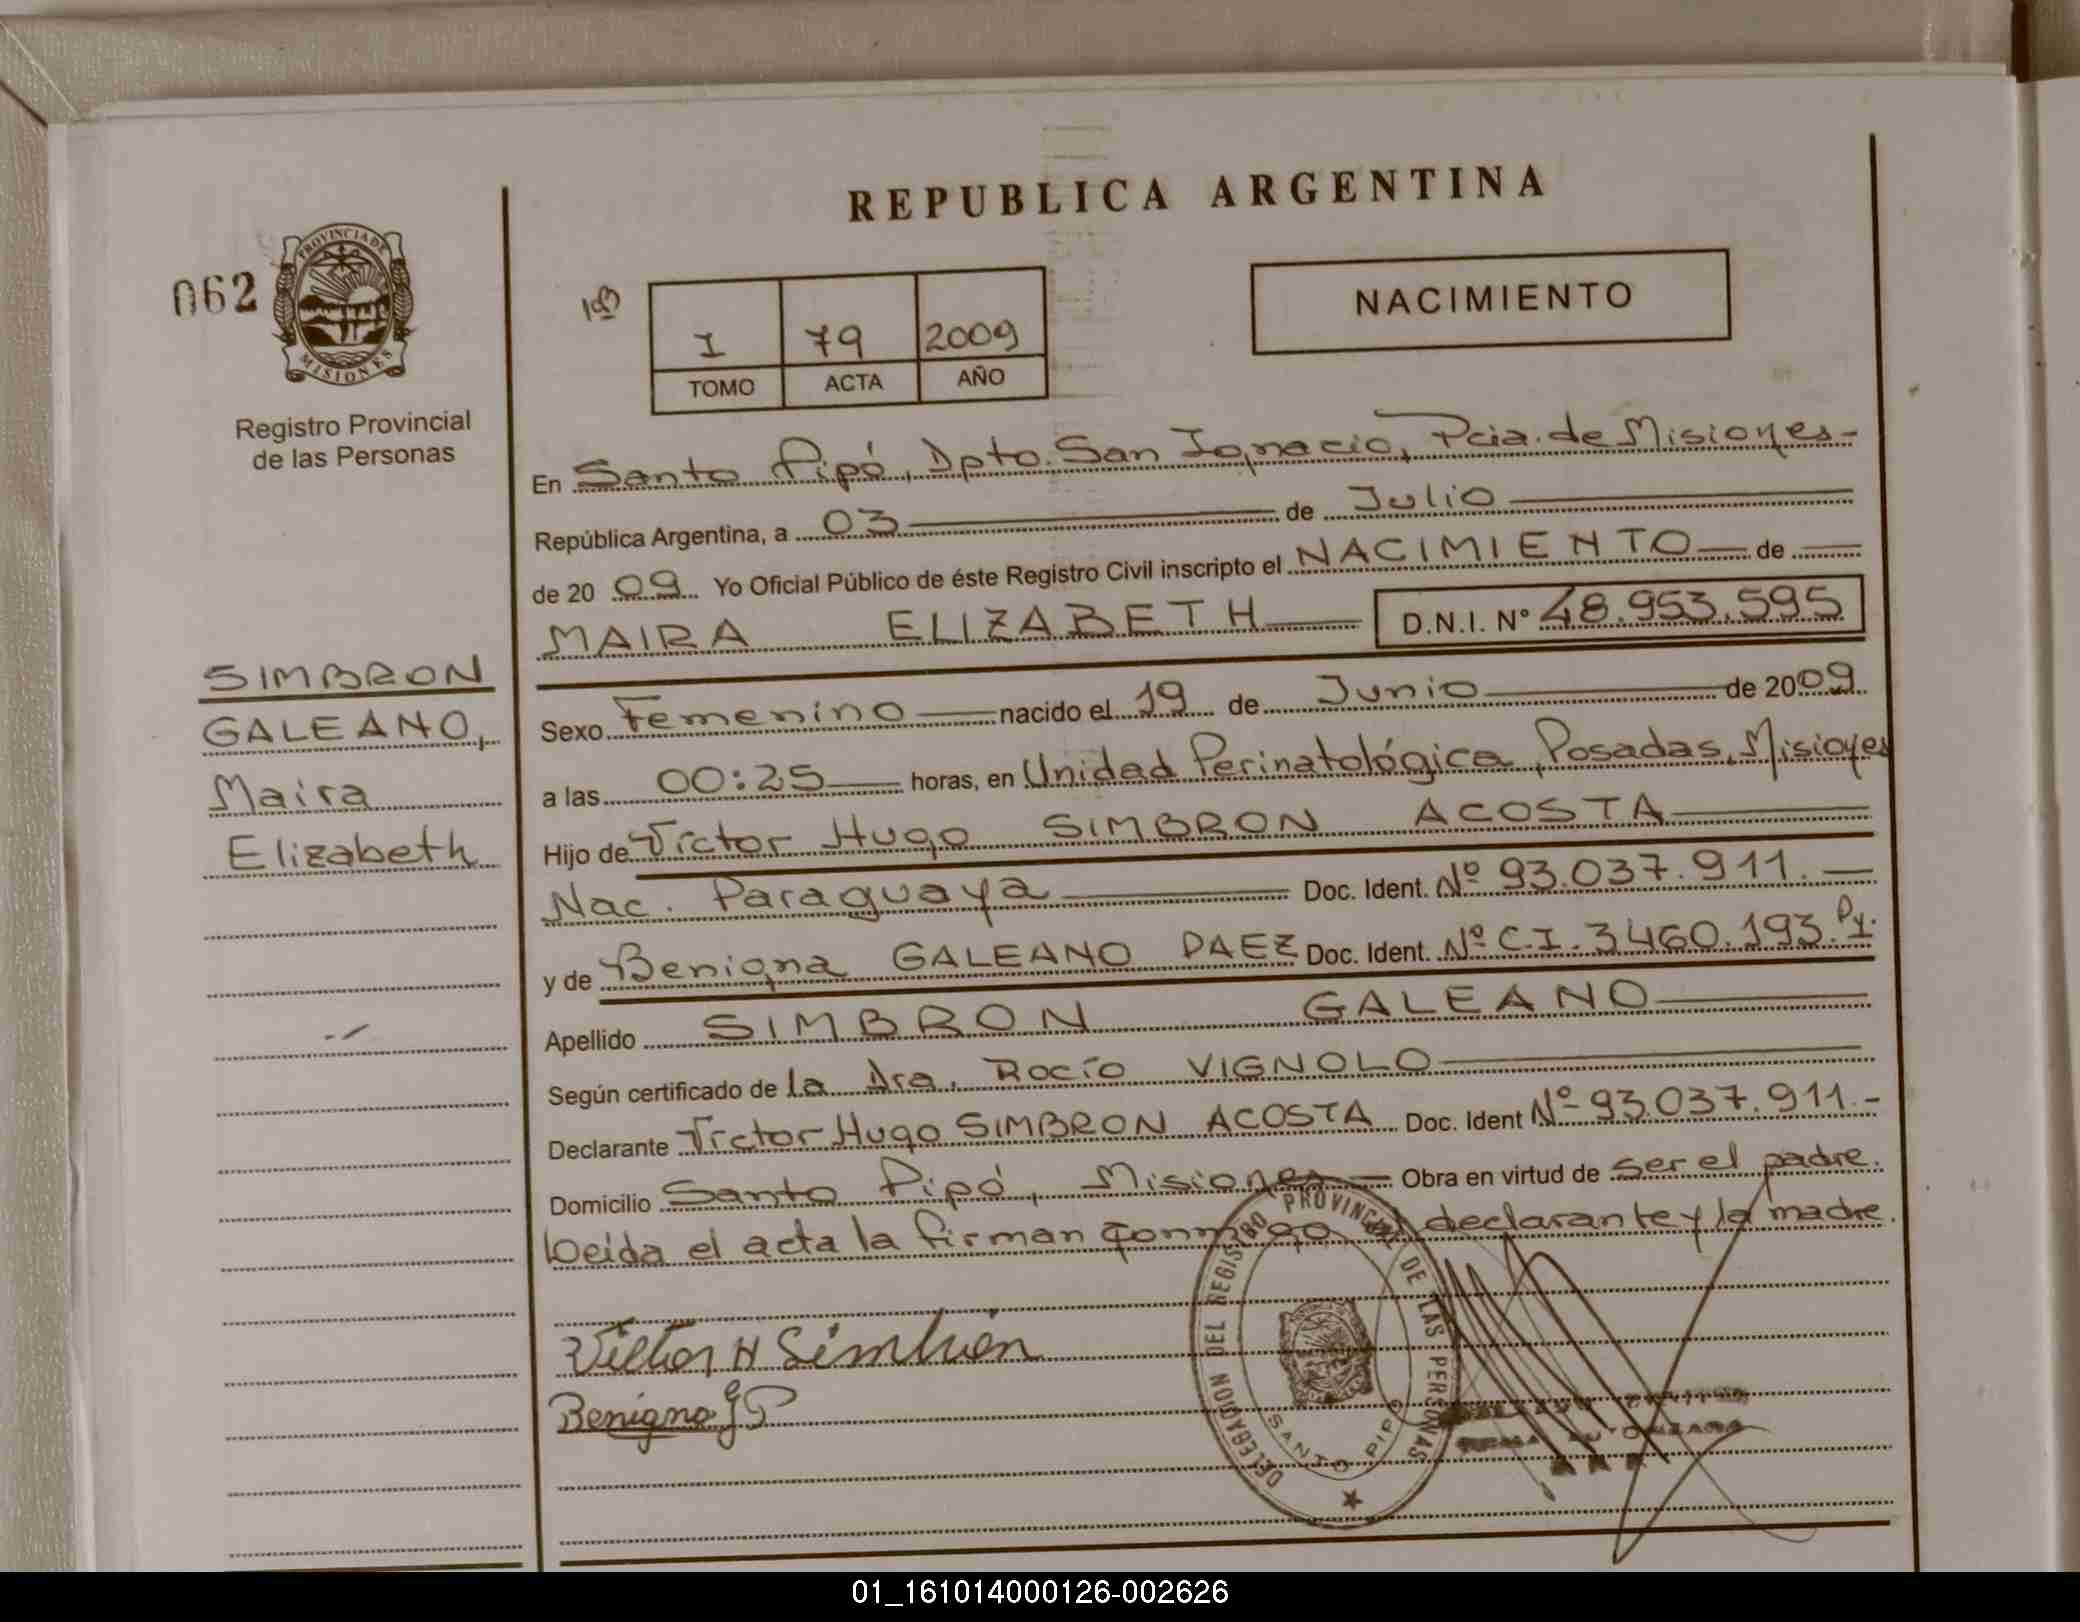 REPUBLICA ARGENTINA
062
PROVINCIA DE
MISIONES
Registro Provincial
de las Personas
I 79 2009
TOMO ACTA AÑO
NACIMIENTO
En Santo Pipó, Dpto. San Ignacio, Pcia. de Misiones-
República Argentina, a 03 de Julio
de 2009 Yo Oficial Público de éste Registro Civil inscripto el NACIMIENTO de
MAIRA ELIZABETH D.N.I. N° 48.953.595
SIMBRON
GALEANO,
Maira
Elizabeth
Sexo Femenino nacido el 19 de Junio de 2009
a las 00:25 horas, en Unidad Perinatológica, Posadas, Misiones
Hijo de Víctor Hugo SIMBRON ACOSTA
Nac. Paraguaya Doc. Ident. Nº 93.037.911.-
y de Benigna GALEANO PAEZ Doc. Ident. Nº C.I. 3460.193. Py.
Apellido SIMBRON GALEANO
Según certificado de la Dra. Rocío VIGNOLO
Declarante Víctor Hugo SIMBRON ACOSTA Doc. Ident Nº 93.037.911.-
Domicilio Santo Pipó, Misiones Obra en virtud de ser el padre.
Leida el acta la firman conmigo declarante y la madre.
Victor H Simbrón
Benigna G P
DELEGACION DEL REGISTRO PROVINCIAL DE LAS PERSONAS
SANTO PIPO
01_161014000126-002626